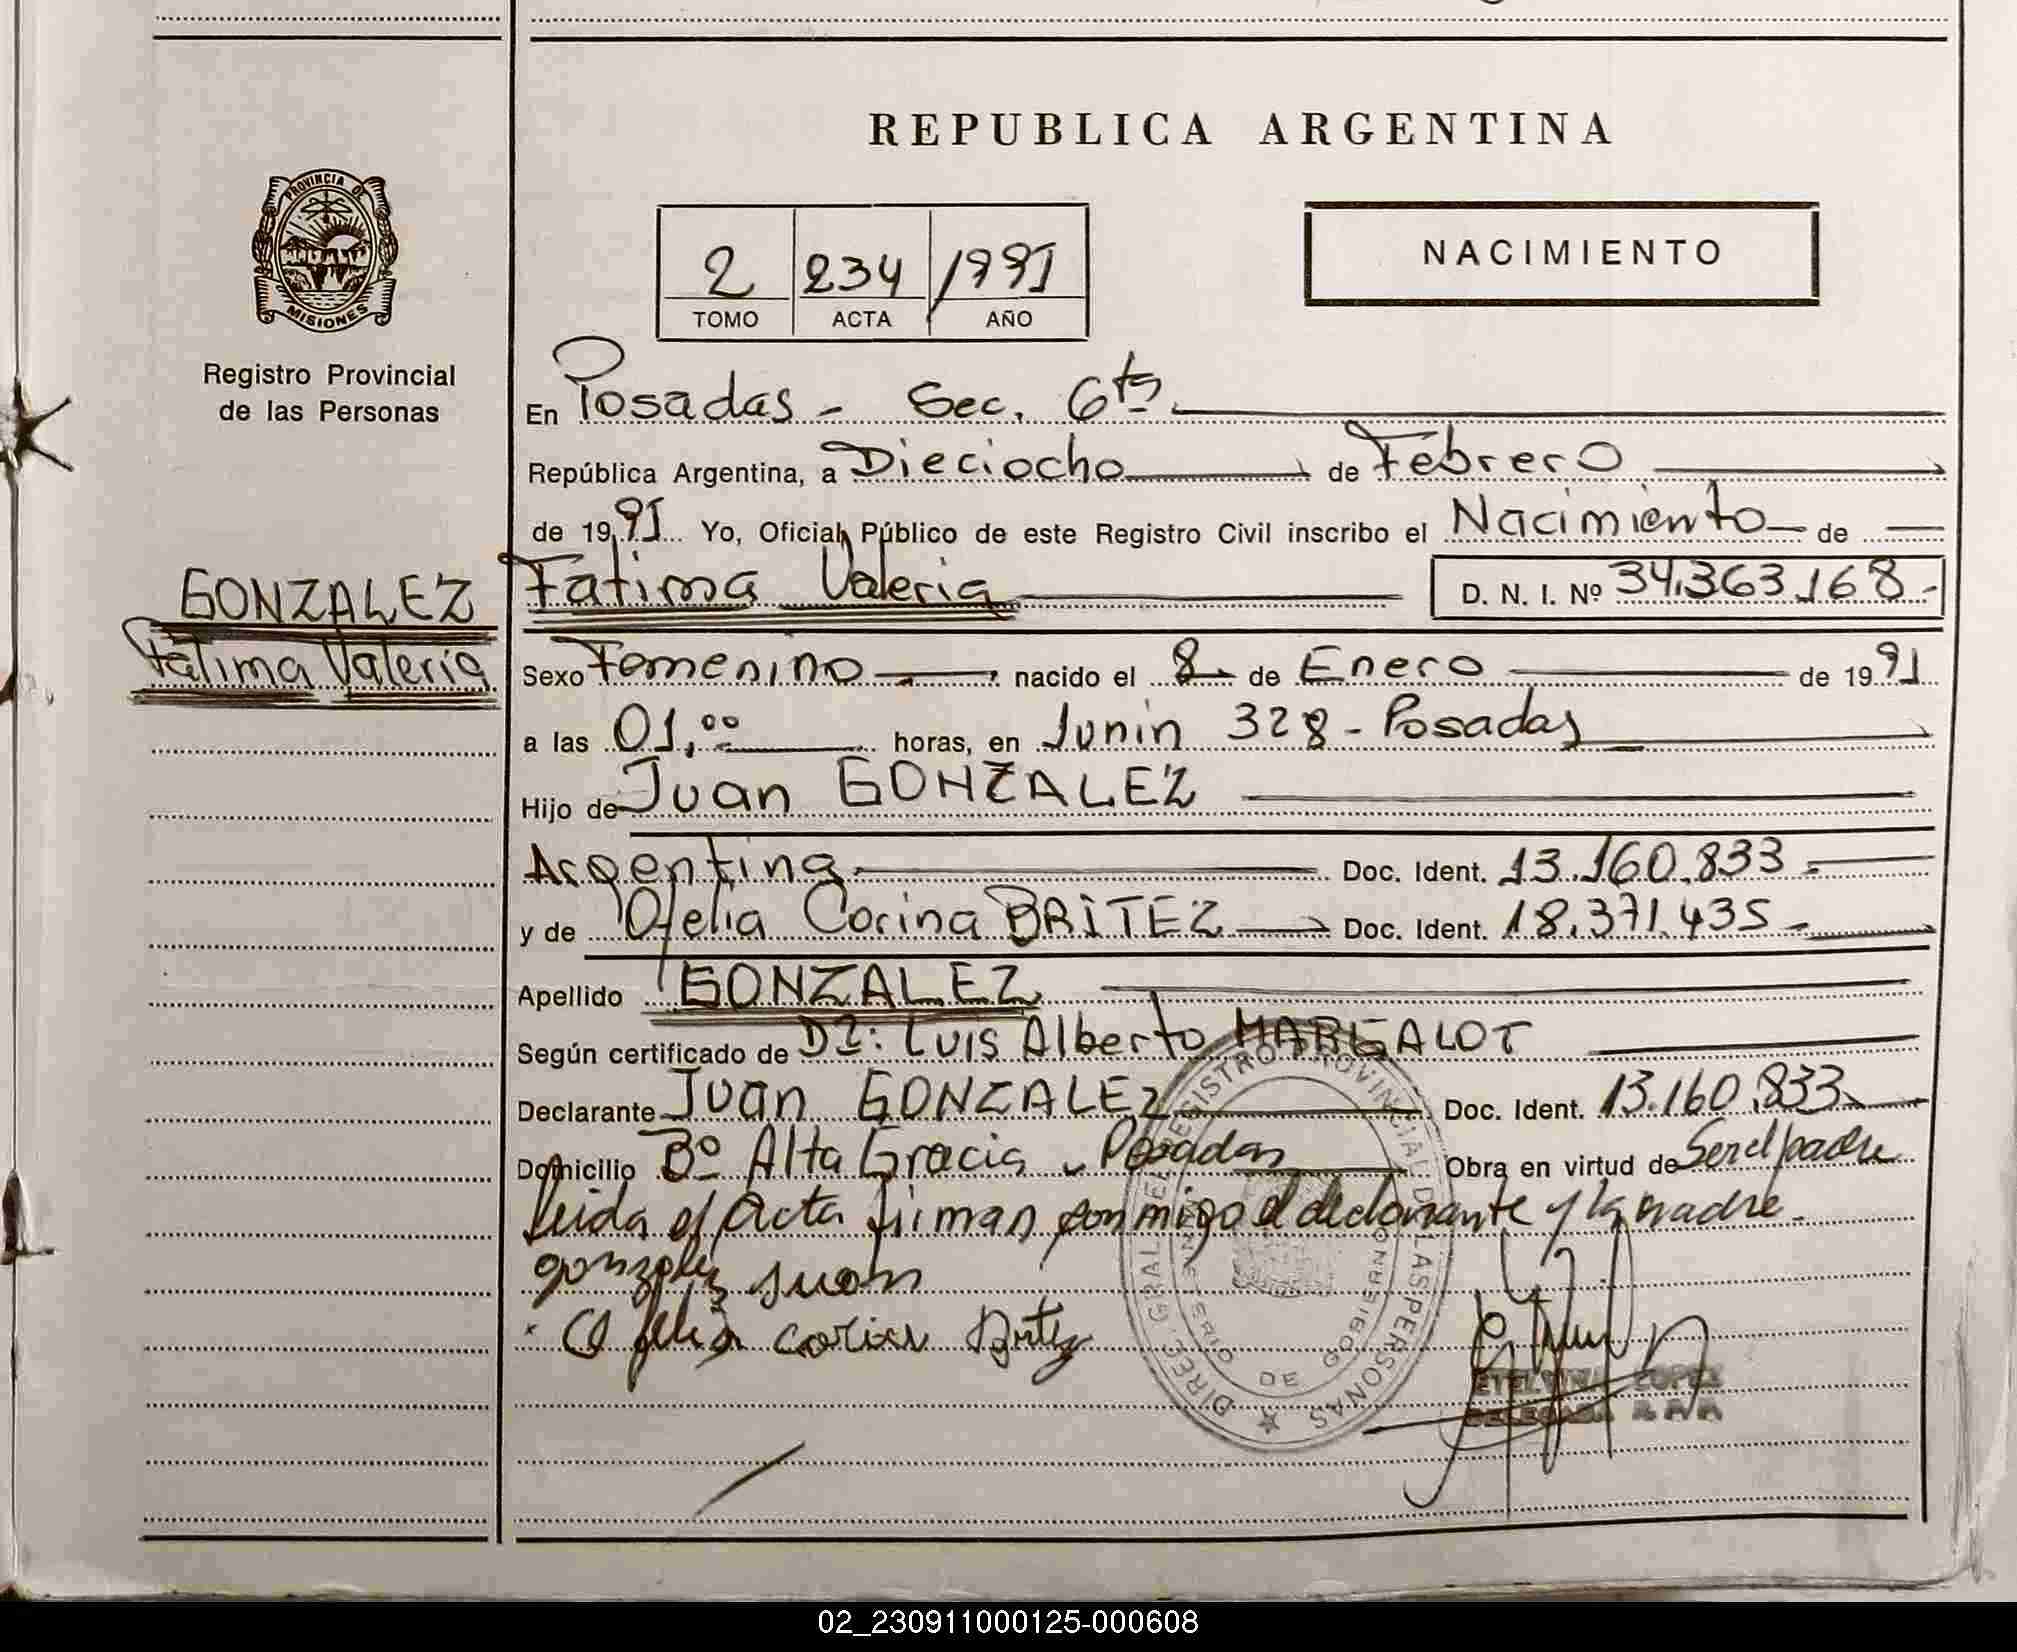 REPUBLICA ARGENTINA
PROVINCIA DE
MISIONES
Registro Provincial
de las Personas
2 234 1991
TOMO ACTA AÑO
NACIMIENTO
En Posadas - Sec. 6ta
República Argentina, a Dieciocho de Febrero
de 1991 Yo, Oficial Público de este Registro Civil inscribo el Nacimiento de
GONZALEZ
Fatima Valeria
Fatima Valeria D. N. I. Nº 34.363.168-
Sexo Femenino nacido el 8 de Enero de 1991
a las 01,00 horas, en Junin 328 - Posadas
Hijo de Juan GONZALEZ
Argentina Doc. Ident. 13.160.833
y de Ofelia Corina BRITEZ Doc. Ident. 18.371.435
Apellido GONZALEZ
Según certificado de Dr: Luis Alberto MARGALOT
Declarante Juan GONZALEZ Doc. Ident. 13.160.833
Domicilio Bº Alta Gracia - Posadas Obra en virtud de Ser el padre
leida el acta firman conmigo el declarante y la madre
gonzalez juan
Ofelia corina Britez
DIREC. GRAL. DEL REGISTRO PROVINCIAL DE LAS PERSONAS
ETELVINA LOPEZ
02_230911000125-000608